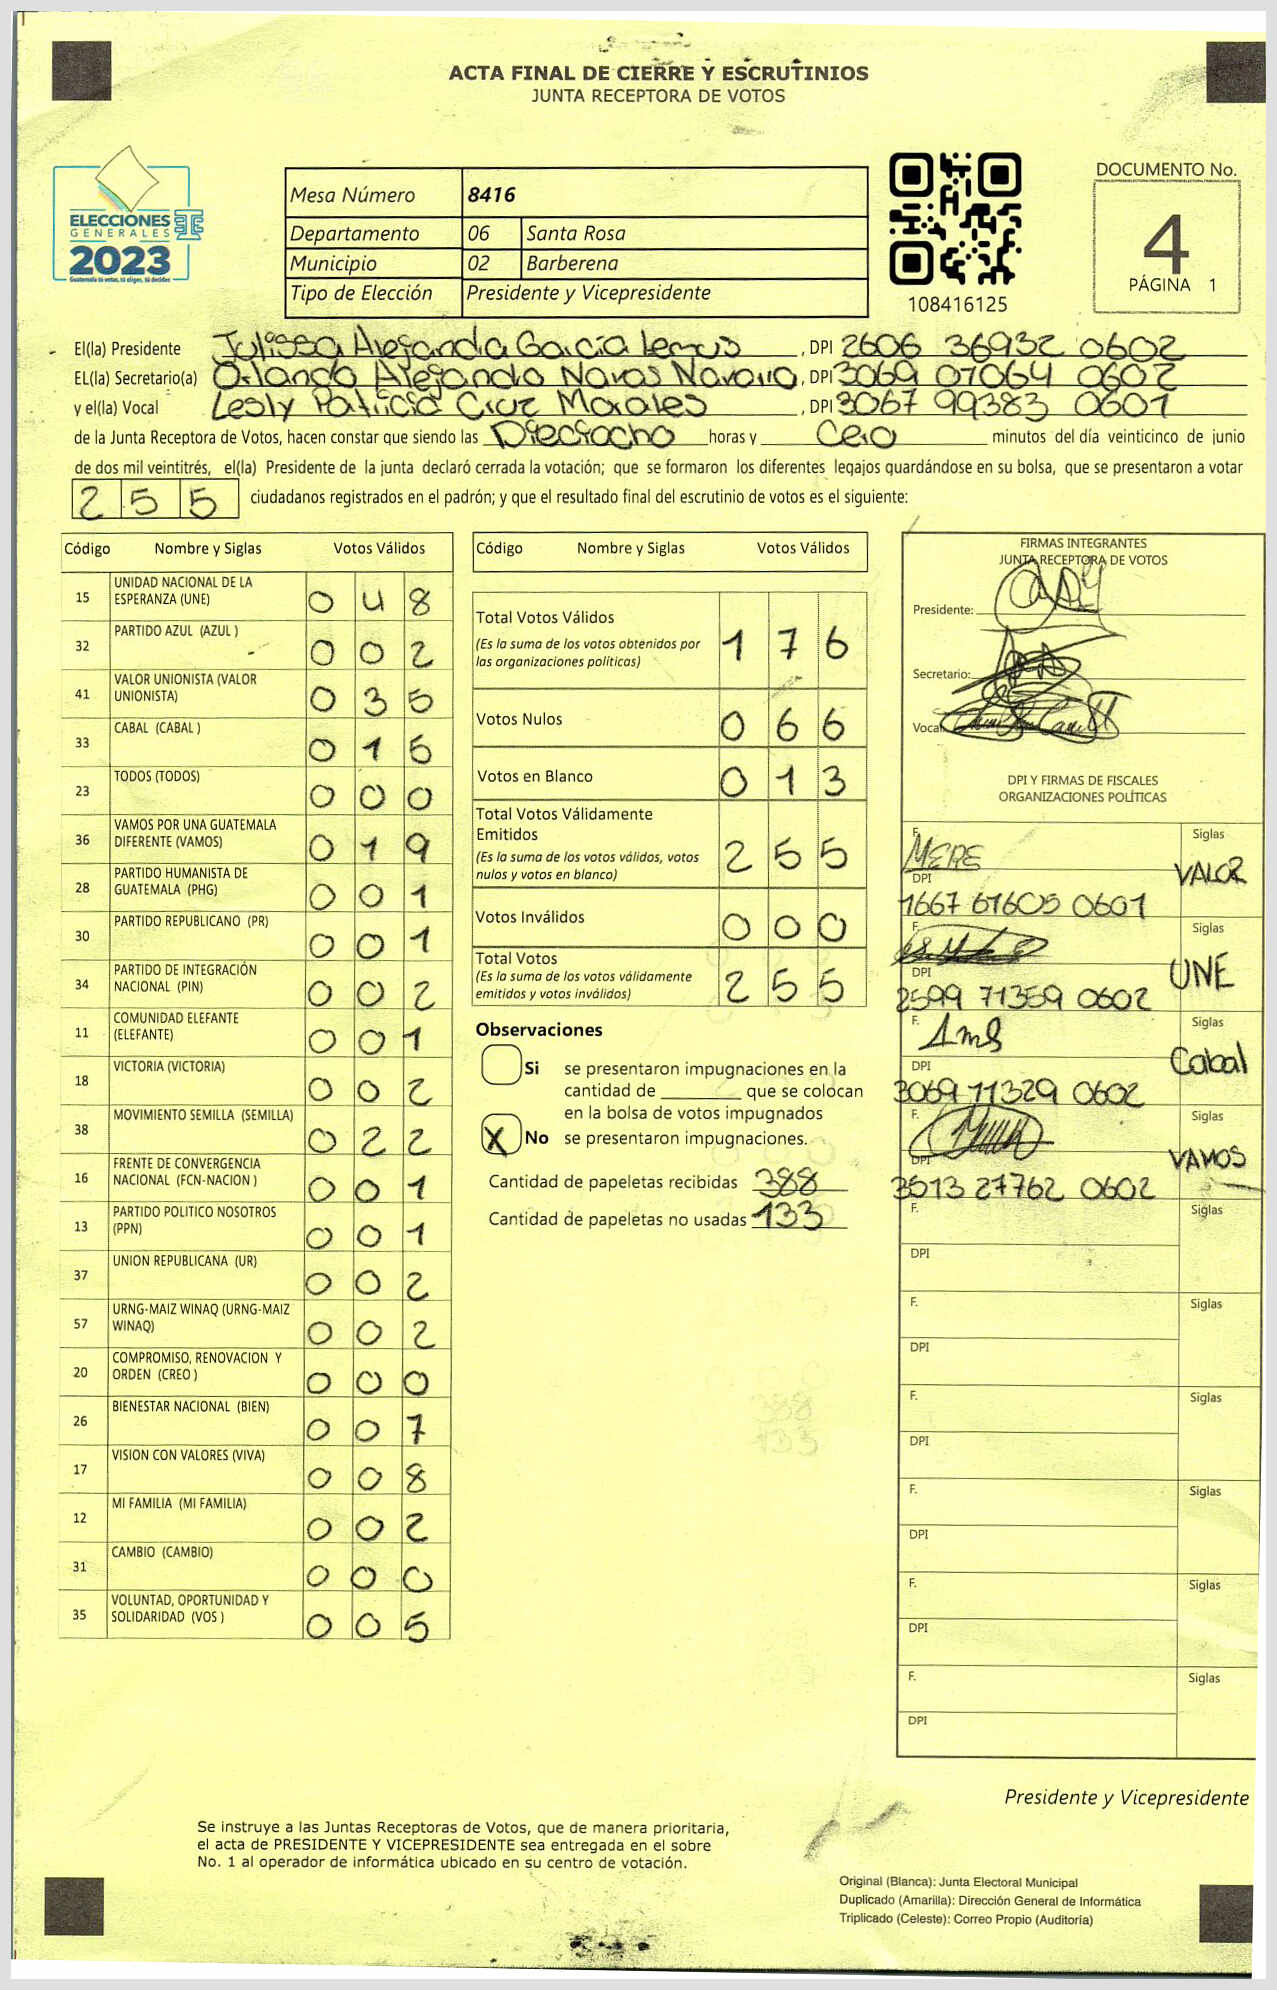 ACTA FINAL DE CIERRE Y ESCRUTINIOS
JUNTA RECEPTORA DE VOTOS
ELECCIONES
GENERALES
2023
Guatemala tú votas, tú eliges, tú decides
Mesa Número 8416
Departamento 06 Santa Rosa
Municipio 02 Barberena
Tipo de Elección Presidente y Vicepresidente
108416125
DOCUMENTO No.
4
PÁGINA 1
El(la) Presidente Julissa Alejandra García Lemus, DPI 2606 36932 0602
EL(la) Secretario(a) Orlando Alejandro Navas Navarro, DPI 3069 07064 0602
y el(la) Vocal Lesly Patricia Cruz Morales, DPI 3067 99383 0601
de la Junta Receptora de Votos, hacen constar que siendo las Dieciocho horas y Cero minutos del día veinticinco de junio
de dos mil veintitrés, el(la) Presidente de la junta declaró cerrada la votación; que se formaron los diferentes legajos guardándose en su bolsa, que se presentaron a votar
255 ciudadanos registrados en el padrón; y que el resultado final del escrutinio de votos es el siguiente:
Código Nombre y Siglas Votos Válidos
15 UNIDAD NACIONAL DE LA ESPERANZA (UNE) 0 4 8
32 PARTIDO AZUL (AZUL ) 0 0 2
41 VALOR UNIONISTA (VALOR UNIONISTA) 0 3 5
33 CABAL (CABAL ) 0 1 5
23 TODOS (TODOS) 0 0 0
36 VAMOS POR UNA GUATEMALA DIFERENTE (VAMOS) 0 1 9
28 PARTIDO HUMANISTA DE GUATEMALA (PHG) 0 0 1
30 PARTIDO REPUBLICANO (PR) 0 0 1
34 PARTIDO DE INTEGRACIÓN NACIONAL (PIN) 0 0 2
11 COMUNIDAD ELEFANTE (ELEFANTE) 0 0 1
18 VICTORIA (VICTORIA) 0 0 2
38 MOVIMIENTO SEMILLA (SEMILLA) 0 2 2
16 FRENTE DE CONVERGENCIA NACIONAL (FCN-NACION ) 0 0 1
13 PARTIDO POLITICO NOSOTROS (PPN) 0 0 1
37 UNION REPUBLICANA (UR) 0 0 2
57 URNG-MAIZ WINAQ (URNG-MAIZ WINAQ) 0 0 2
20 COMPROMISO, RENOVACION Y ORDEN (CREO ) 0 0 0
26 BIENESTAR NACIONAL (BIEN) 0 0 7
17 VISION CON VALORES (VIVA) 0 0 8
12 MI FAMILIA (MI FAMILIA) 0 0 2
31 CAMBIO (CAMBIO) 0 0 0
35 VOLUNTAD, OPORTUNIDAD Y SOLIDARIDAD (VOS ) 0 0 5
Código Nombre y Siglas Votos Válidos
Total Votos Válidos 1 7 6
(Es la suma de los votos obtenidos por
las organizaciones políticas)
Votos Nulos 0 6 6
Votos en Blanco 0 1 3
Total Votos Válidamente
Emitidos 2 5 5
(Es la suma de los votos válidos, votos
nulos y votos en blanco)
Votos Inválidos 0 0 0
Total Votos 2 5 5
(Es la suma de los votos válidamente
emitidos y votos inválidos)
Observaciones
Si se presentaron impugnaciones en la
cantidad de ________ que se colocan
en la bolsa de votos impugnados
X No se presentaron impugnaciones.
Cantidad de papeletas recibidas 388
Cantidad de papeletas no usadas 133
FIRMAS INTEGRANTES
JUNTA RECEPTORA DE VOTOS
Presidente:
Secretario:
Vocal
DPI Y FIRMAS DE FISCALES
ORGANIZACIONES POLÍTICAS
F. Siglas
VALOR
DPI
1667 61605 0601
F. Siglas
UNE
DPI
2599 71359 0602
F. Siglas
Cabal
DPI
3069 11329 0602
F. Siglas
VAMOS
DPI
3513 27762 0602
F. Siglas
DPI
F. Siglas
DPI
F. Siglas
DPI
F. Siglas
DPI
F. Siglas
DPI
F. Siglas
DPI
Presidente y Vicepresidente
Se instruye a las Juntas Receptoras de Votos, que de manera prioritaria,
el acta de PRESIDENTE Y VICEPRESIDENTE sea entregada en el sobre
No. 1 al operador de informática ubicado en su centro de votación.
Original (Blanca): Junta Electoral Municipal
Duplicado (Amarilla): Dirección General de Informática
Triplicado (Celeste): Correo Propio (Auditoría)